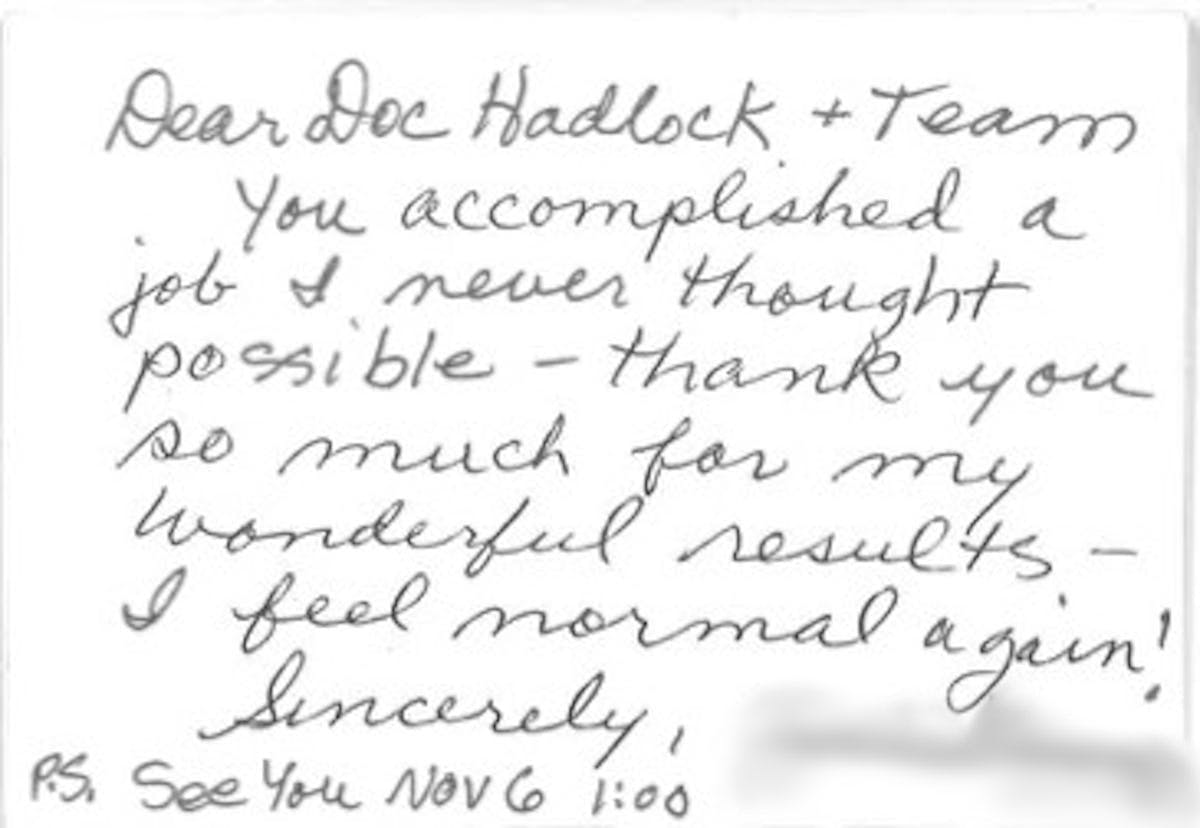 Dear Doc Hadlock + Team
You accomplished a
job I never thought
possible - thank you
so much for my
wonderful results -
I feel normal again!
Sincerely,
P.S. See You Nov 6 1:00